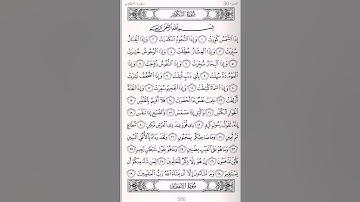 الجزء 30 سورة التكوير
سُورَةُ التَّكْوِيرِ
بِسْمِ اللَّهِ الرَّحْمَٰنِ الرَّحِيمِ
إِذَا الشَّمْسُ كُوِّرَتْ ١ وَإِذَا النُّجُومُ انكَدَرَتْ ٢ وَإِذَا الْجِبَالُ
سُيِّرَتْ ٣ وَإِذَا الْعِشَارُ عُطِّلَتْ ٤ وَإِذَا الْوُحُوشُ حُشِرَتْ
٥ وَإِذَا الْبِحَارُ سُجِّرَتْ ٦ وَإِذَا النُّفُوسُ زُوِّجَتْ ٧ وَإِذَا الْمَوْءُودَةُ
سُئِلَتْ ٨ بِأَيِّ ذَنبٍ قُتِلَتْ ٩ وَإِذَا الصُّحُفُ نُشِرَتْ ١٠
وَإِذَا السَّمَاءُ كُشِطَتْ ١١ وَإِذَا الْجَحِيمُ سُعِّرَتْ ١٢ وَإِذَا الْجَنَّةُ
أُزْلِفَتْ ١٣ عَلِمَتْ نَفْسٌ مَّا أَحْضَرَتْ ١٤ فَلَا أُقْسِمُ بِالْخُنَّسِ ١٥
الْجَوَارِ الْكُنَّسِ ١٦ وَاللَّيْلِ إِذَا عَسْعَسَ ١٧ وَالصُّبْحِ إِذَا تَنَفَّسَ
١٨ إِنَّهُ لَقَوْلُ رَسُولٍ كَرِيمٍ ١٩ ذِي قُوَّةٍ عِندَ ذِي الْعَرْشِ مَكِينٍ ٢٠
مُّطَاعٍ ثَمَّ أَمِينٍ ٢١ وَمَا صَاحِبُكُم بِمَجْنُونٍ ٢٢ وَلَقَدْ رَآهُ بِالْأُفُقِ
الْمُبِينِ ٢٣ وَمَا هُوَ عَلَى الْغَيْبِ بِضَنِينٍ ٢٤ وَمَا هُوَ بِقَوْلِ شَيْطَانٍ
رَّجِيمٍ ٢٥ فَأَيْنَ تَذْهَبُونَ ٢٦ إِنْ هُوَ إِلَّا ذِكْرٌ لِّلْعَالَمِينَ ٢٧ لِمَن شَاءَ
مِنكُمْ أَن يَسْتَقِيمَ ٢٨ وَمَا تَشَاءُونَ إِلَّا أَن يَشَاءَ اللَّهُ رَبُّ الْعَالَمِينَ ٢٩
سُورَةُ الِانفِطَارِ
586